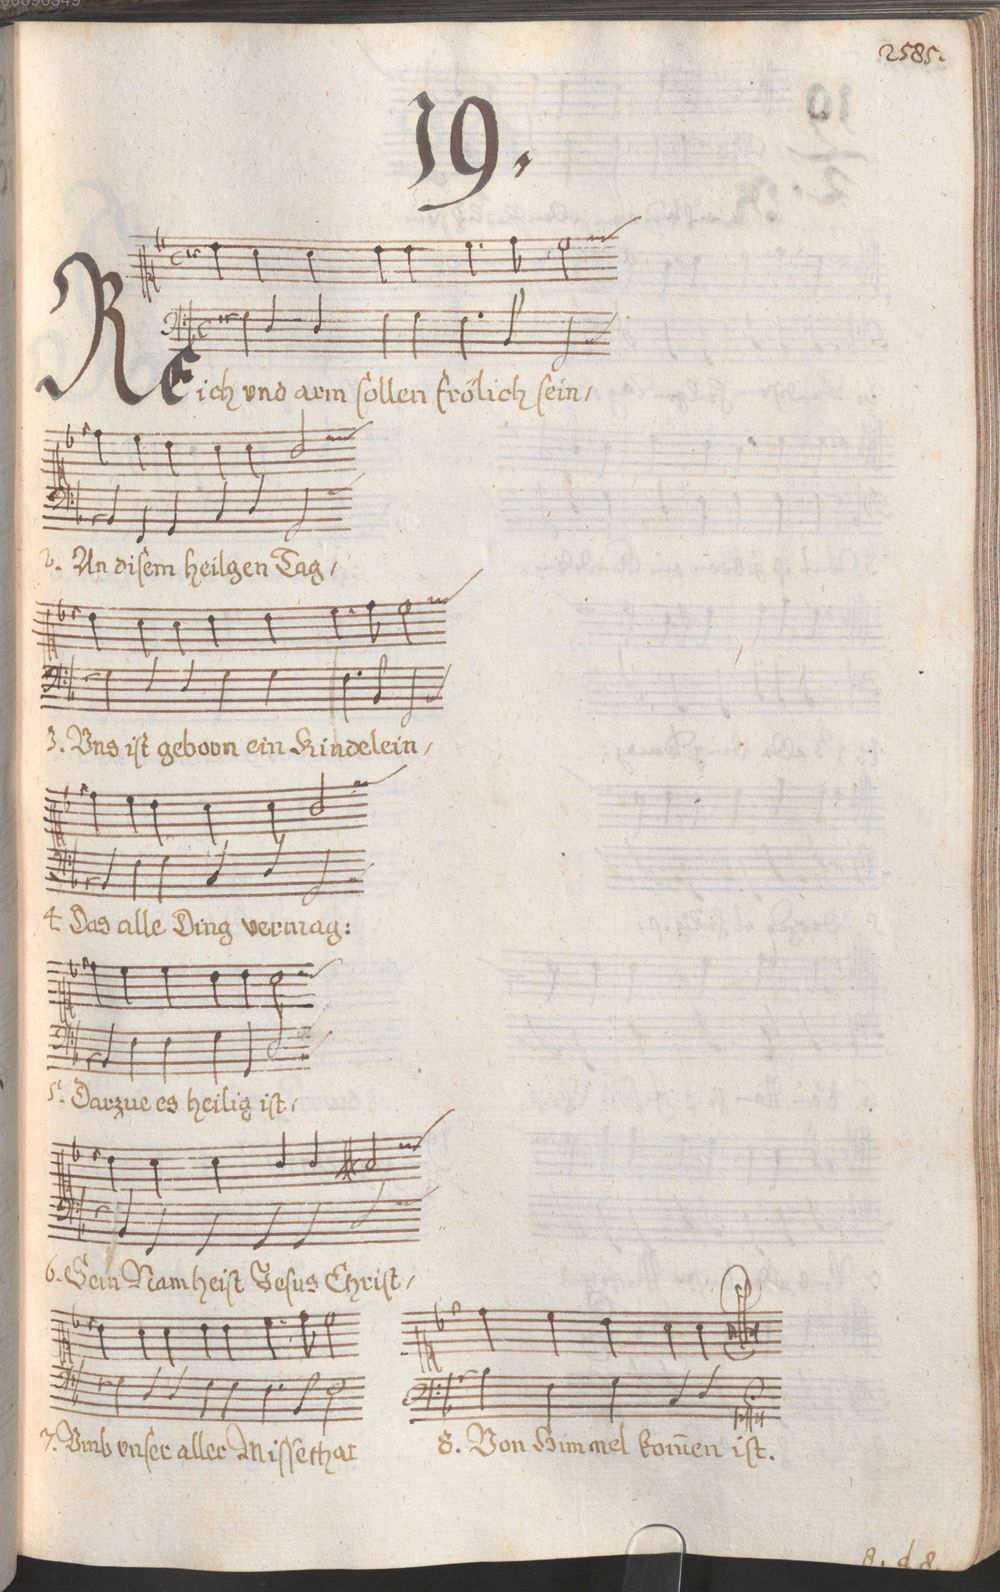 2585.
19.
REich vnd arm sollen frölich sein/
2. An disem heilgen Tag/
3. Vns ist geborn ein Kindelein/
4. Das alle Ding vermag:
5. Darzue es heilig ist/
6. Sein Nam heist Jesus Christ/
7. Vmb vnser aller Missethat
8. Von Himmel kom̄en ist.